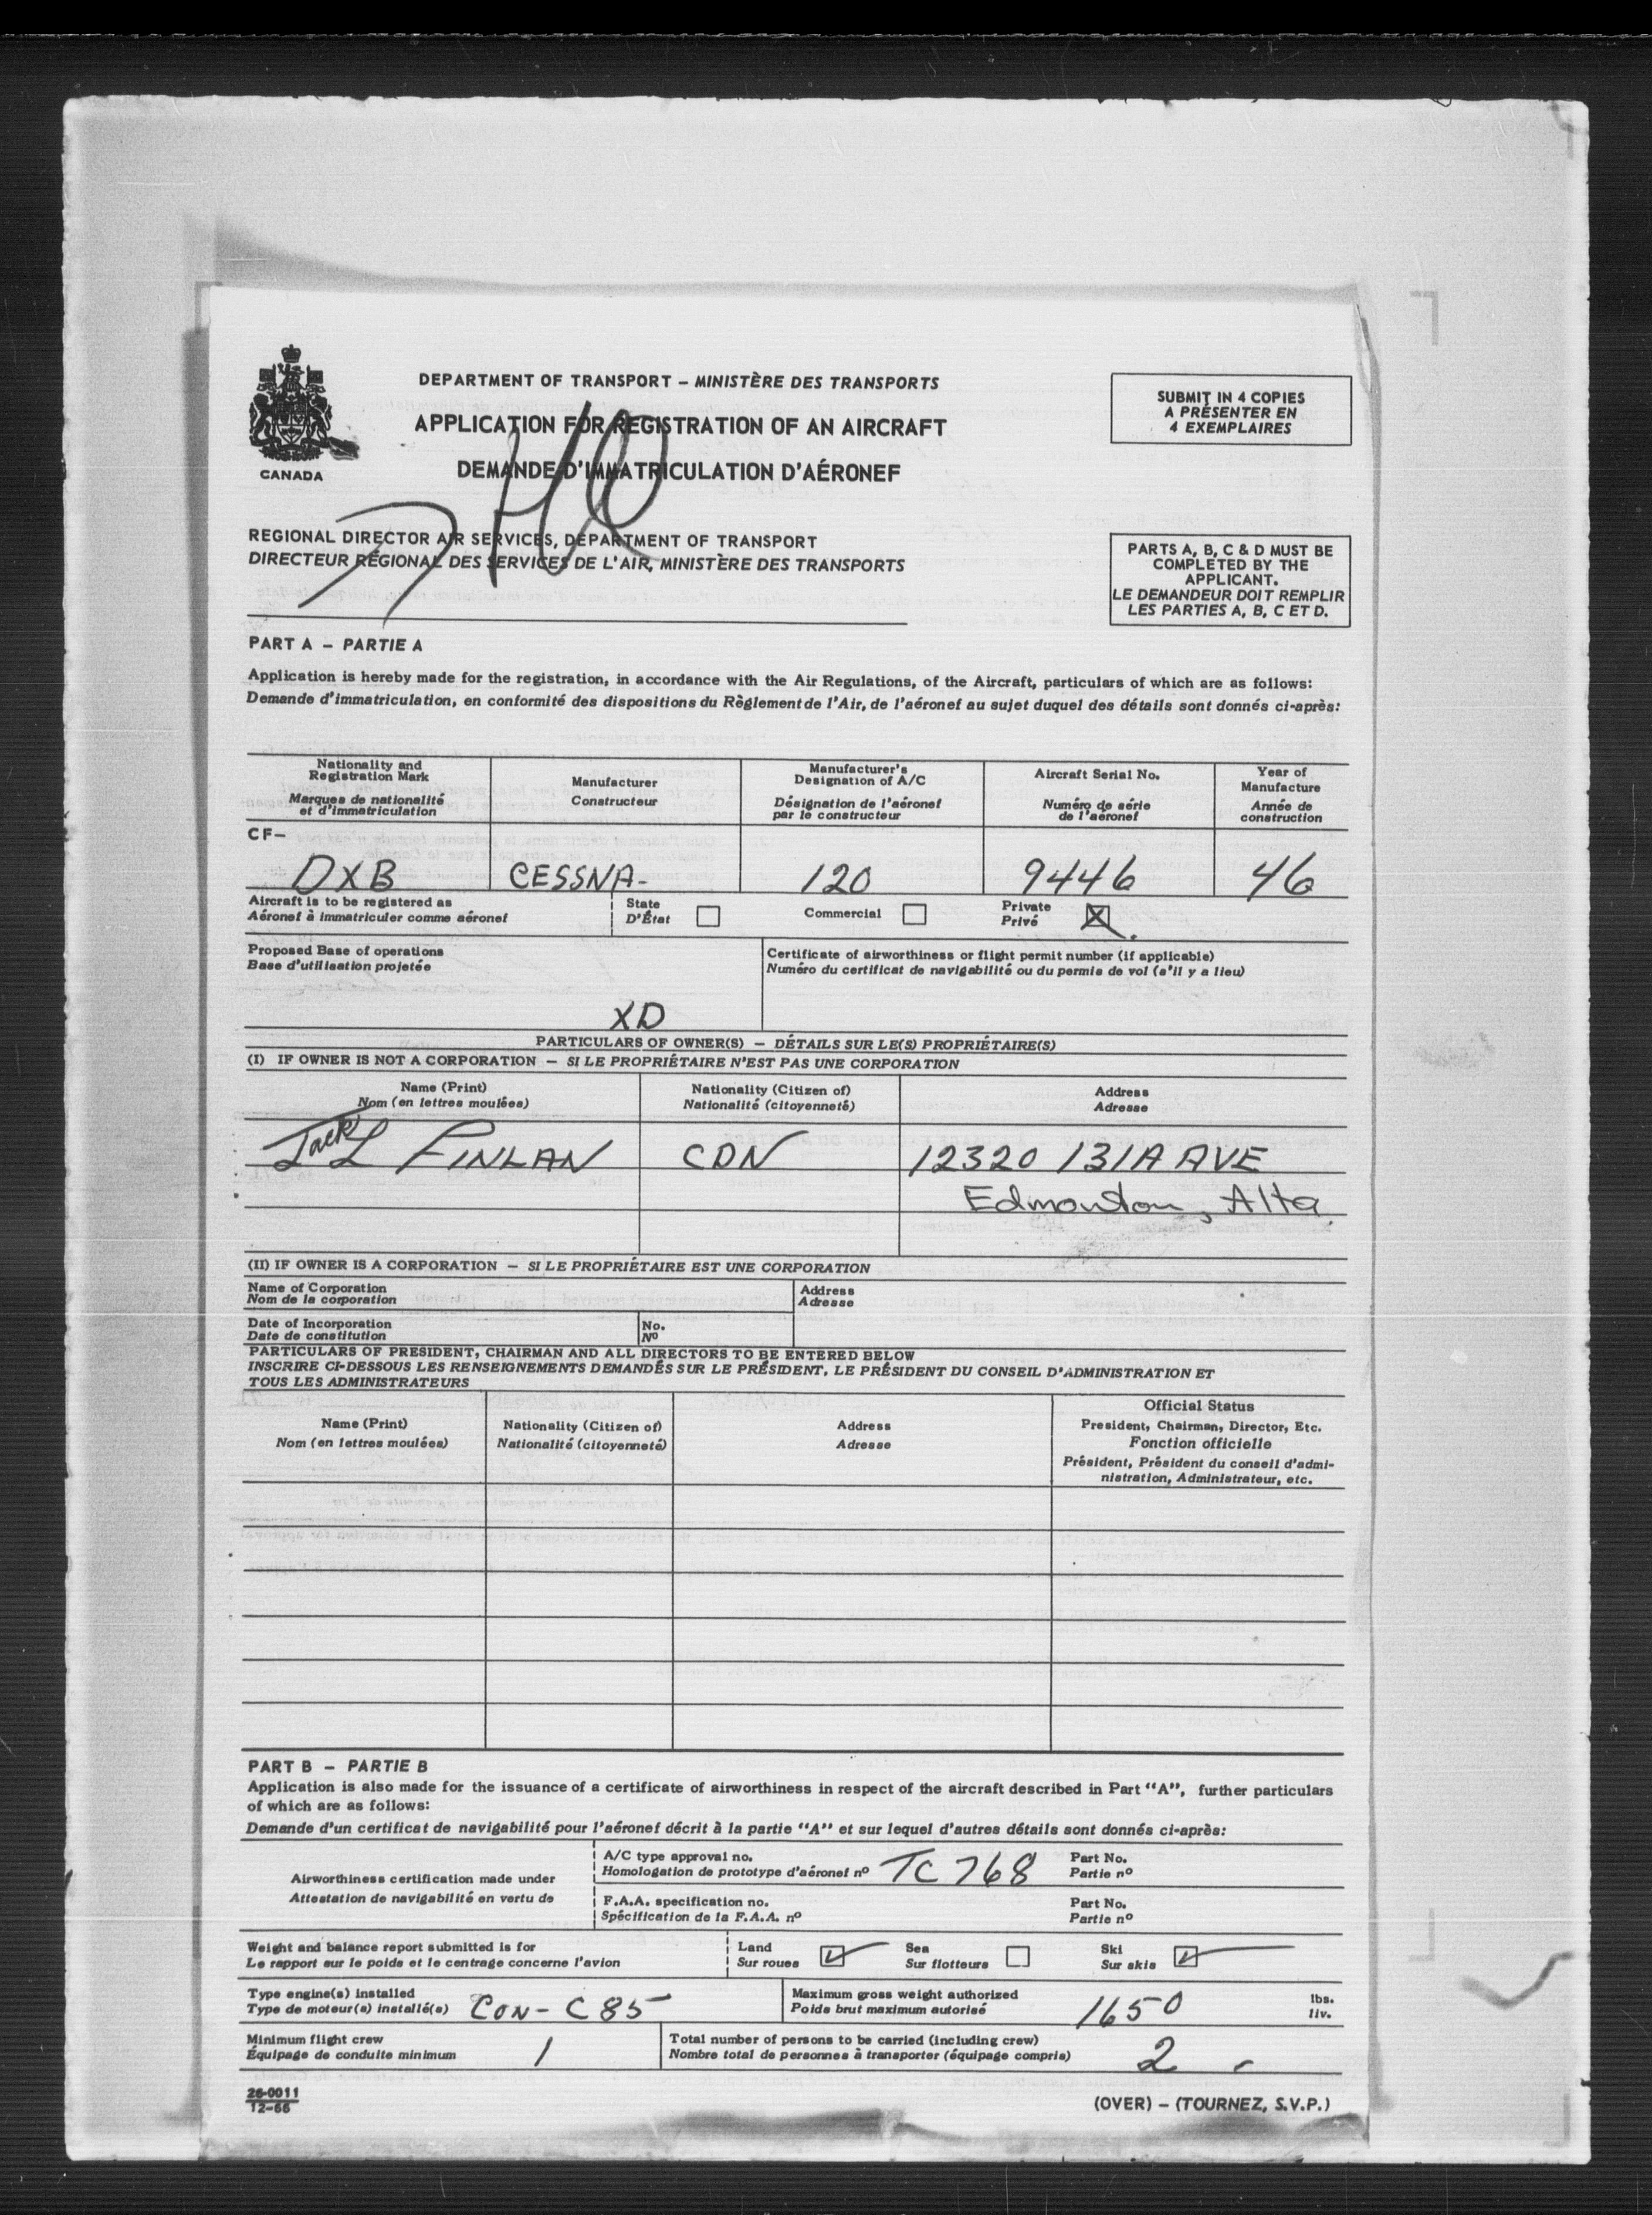 DEPARTMENT OF TRANSPORT – MINISTÈRE DES TRANSPORTS
APPLICATION FOR REGISTRATION OF AN AIRCRAFT
DEMANDE D'IMMATRICULATION D'AÉRONEF
CANADA
SUBMIT IN 4 COPIES
A PRÉSENTER EN
4 EXEMPLAIRES
REGIONAL DIRECTOR AIR SERVICES, DEPARTMENT OF TRANSPORT
DIRECTEUR RÉGIONAL DES SERVICES DE L'AIR, MINISTÈRE DES TRANSPORTS
PARTS A, B, C & D MUST BE
COMPLETED BY THE
APPLICANT.
LE DEMANDEUR DOIT REMPLIR
LES PARTIES A, B, C ET D.
PART A – PARTIE A
Application is hereby made for the registration, in accordance with the Air Regulations, of the Aircraft, particulars of which are as follows:
Demande d'immatriculation, en conformité des dispositions du Règlement de l'Air, de l'aéronef au sujet duquel des détails sont donnés ci-après:
Nationality and
Registration Mark
Marques de nationalité
et d'immatriculation
Manufacturer
Constructeur
Manufacturer's
Designation of A/C
Désignation de l'aéronef
par le constructeur
Aircraft Serial No.
Numéro de série
de l'aéronef
Year of
Manufacture
Année de
construction
CF–
DXB CESSNA- 120 9446 46
Aircraft is to be registered as
Aéronef à immatriculer comme aéronef
State
D'État
Commercial
Private
Privé
X
Proposed Base of operations
Base d'utilisation projetée
XD
Certificate of airworthiness or flight permit number (if applicable)
Numéro du certificat de navigabilité ou du permis de vol (s'il y a lieu)
PARTICULARS OF OWNER(S) – DÉTAILS SUR LE(S) PROPRIÉTAIRE(S)
(I) IF OWNER IS NOT A CORPORATION – SI LE PROPRIÉTAIRE N'EST PAS UNE CORPORATION
Name (Print)
Nom (en lettres moulées)
Nationality (Citizen of)
Nationalité (citoyenneté)
Address
Adresse
Jack L FINLAN CDN 12320 131A AVE
Edmonton, Alta.
(II) IF OWNER IS A CORPORATION – SI LE PROPRIÉTAIRE EST UNE CORPORATION
Name of Corporation
Nom de la corporation
Address
Adresse
Date of Incorporation
Date de constitution
No.
Nº
PARTICULARS OF PRESIDENT, CHAIRMAN AND ALL DIRECTORS TO BE ENTERED BELOW
INSCRIRE CI-DESSOUS LES RENSEIGNEMENTS DEMANDÉS SUR LE PRÉSIDENT, LE PRÉSIDENT DU CONSEIL D'ADMINISTRATION ET
TOUS LES ADMINISTRATEURS
Name (Print)
Nom (en lettres moulées)
Nationality (Citizen of)
Nationalité (citoyenneté)
Address
Adresse
Official Status
President, Chairman, Director, Etc.
Fonction officielle
Président, Président du conseil d'admi-
nistration, Administrateur, etc.
PART B – PARTIE B
Application is also made for the issuance of a certificate of airworthiness in respect of the aircraft described in Part "A", further particulars
of which are as follows:
Demande d'un certificat de navigabilité pour l'aéronef décrit à la partie "A" et sur lequel d'autres détails sont donnés ci-après:
Airworthiness certification made under
Attestation de navigabilité en vertu de
A/C type approval no.
Homologation de prototype d'aéronef nº TC 768
Part No.
Partie nº
F.A.A. specification no.
Spécification de la F.A.A. nº
Part No.
Partie nº
Weight and balance report submitted is for
Le rapport sur le poids et le centrage concerne l'avion
Land
Sur roues
Sea
Sur flotteurs
Ski
Sur skis
Type engine(s) installed
Type de moteur(s) installé(s) CON- C85
Maximum gross weight authorized
Poids brut maximum autorisé 1650
lbs.
liv.
Minimum flight crew
Équipage de conduite minimum 1
Total number of persons to be carried (including crew)
Nombre total de personnes à transporter (équipage compris) 2 -
26-0011
12-66
(OVER) – (TOURNEZ, S.V.P.)